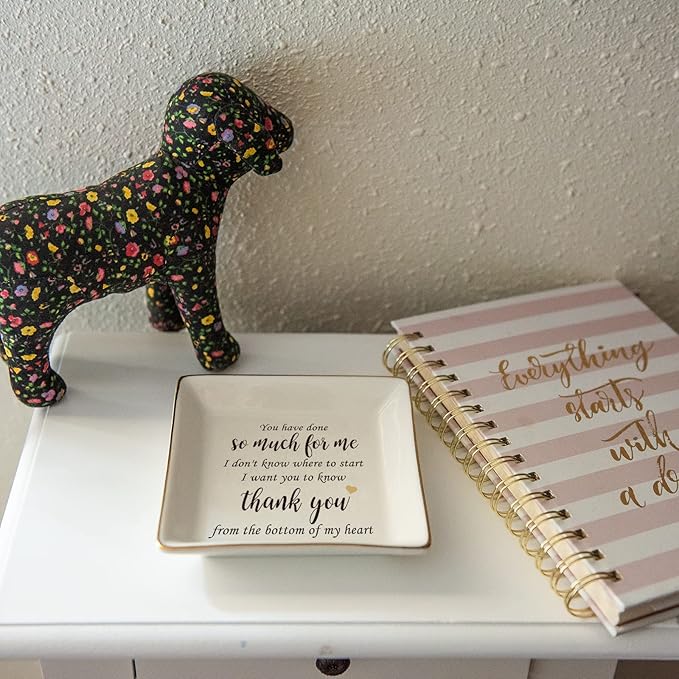 You have done
so much for me
I don't know where to start
I want you to know
thank you
from the bottom of my heart
Everything
starts
with
a